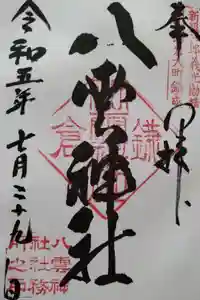 奉拝
八雲神社
令和五年七月二十九日
鎌倉
八雲神
社社務
所之印